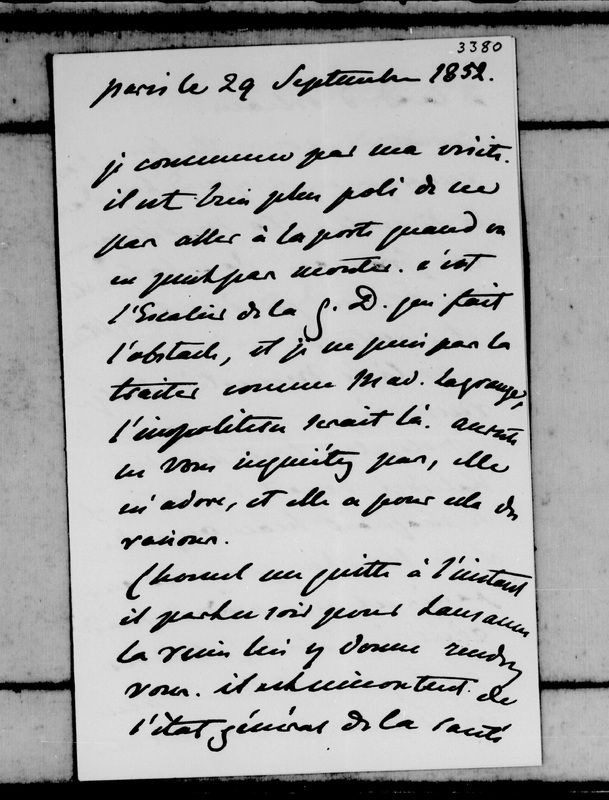 3380
paris le 29 Septembre 1852.
je commence par ma visite.
il est bien plus poli de ne
pas aller à la porte quand on
ne peut pas monter. c'est
l'Escalier de la g. D. qui fait
l'obstacle, et je ne puis pas la
traiter comme Mad. Lagrange,
l'impolitesse serait là. au reste
ne vous inquiétez pas, elle
m'adore, et elle a pour cela des
raisons.
Chomel me quitte à l'instant
il part ce soir pour Lausanne
la reine lui y donne rendez
vous. il est mécontent de
l'état général de la santé